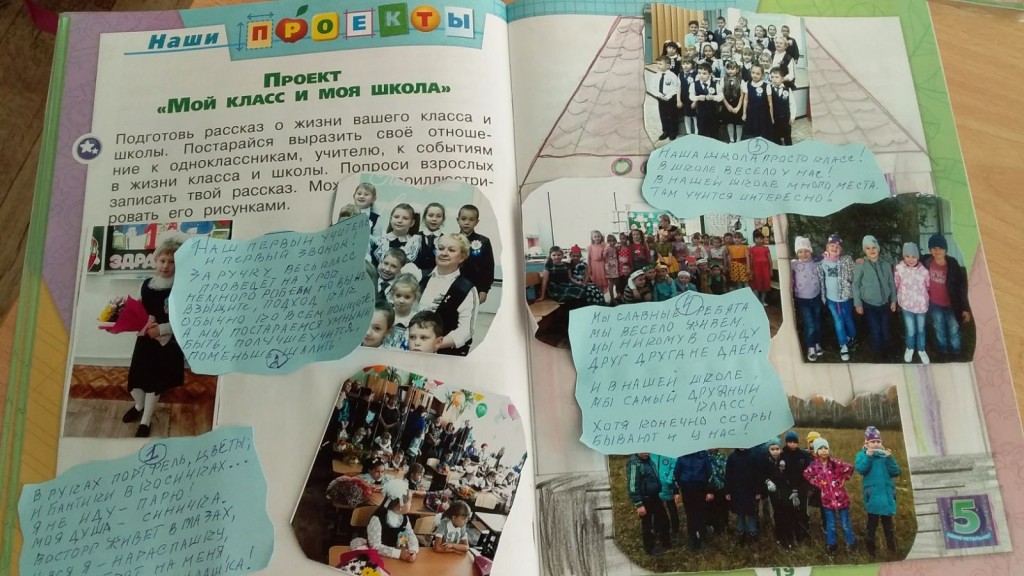 Наши ПРОЕКТЫ
ПРОЕКТ
«МОЙ КЛАСС И МОЯ ШКОЛА»
Подготовь рассказ о жизни вашего класса и
школы. Постарайся выразить своё отноше-
ние к одноклассникам, учителю, к событиям
в жизни класса и школы. Попроси взрослых
записать твой рассказ.
ровать его рисунками.
НАШ ПЕРВЫЙ УЧИТЕЛЬ
И ПЕРВЫЙ ЗВОНОК
ЗА РУЧКУ ВЕСЬ КЛАСС
ПРОВЕДЁТ НА УРОК
НЕМНОГО РОБЕЕМ НО ВЫ НЕ
ВЗЫЩИТЕ,
ОБЫЧНО ВО ВСЁМ
А МЫ ПОСТАРАЕМСЯ
БЫТЬ, ПОЛУЧШЕ УЧИТЬСЯ
ПОМЕНЬШЕ ШАЛИТЬ
2
1
В РУКАХ ПОРТФЕЛЬ, ЦВЕТЫ,
И БАНТИКИ В КОСИЧКАХ...
Я НЕ ИДУ - ПАРЮ!
МОЯ ДУША - СИНИЧКА.
ВОСТОРГ ЖИВЁТ В ГЛАЗАХ,
Я - НАРАСПАШКУ,
НА МЕНЯ
5
НАША ШКОЛА ПРОСТО КЛАСС!
В ШКОЛЕ ВЕСЕЛО У НАС!
В НАШЕЙ ШКОЛЕ МНОГО МЕСТА.
ТАМ УЧИТСЯ ИНТЕРЕСНО!
4
МЫ СЛАВНЫЕ РЕБЯТА
МЫ ВЕСЕЛО ЖИВЁМ.
МЫ НИКОМУ В ОБИДУ
ДРУГ ДРУГА НЕ ДАЁМ.
И В НАШЕЙ ШКОЛЕ
МЫ САМЫЙ ДРУЖНЫЙ
КЛАСС!
ХОТЯ КОНЕЧНО ССОРЫ
БЫВАЮТ И У НАС!
5
19